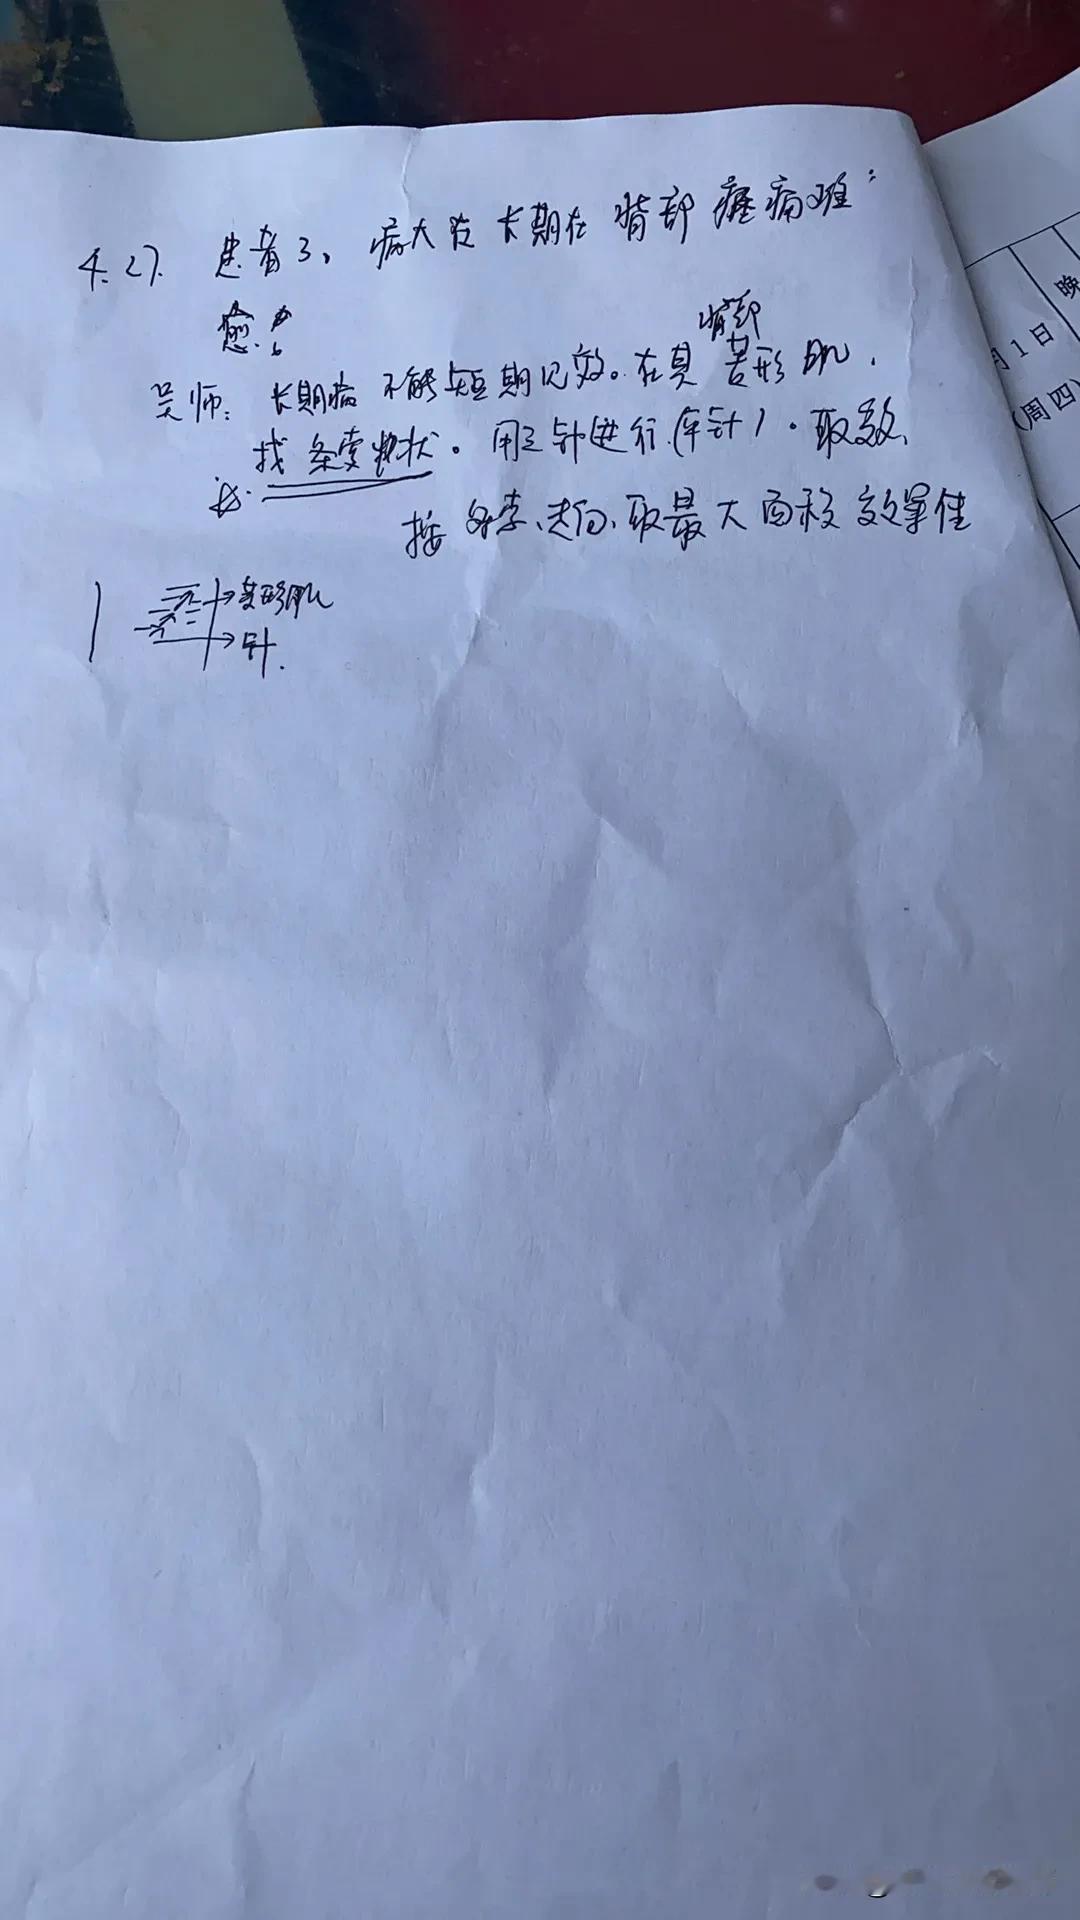 4.27. 患者3, 病大 长期在背部 痛难
愈.
背部
吴师: 长期病不能短期见效。在其菱形肌,
找条索状。用 针进行 针)。取效,
按 走向、取最大面积效果佳
菱形肌
针.
晚
月1日
(周四)